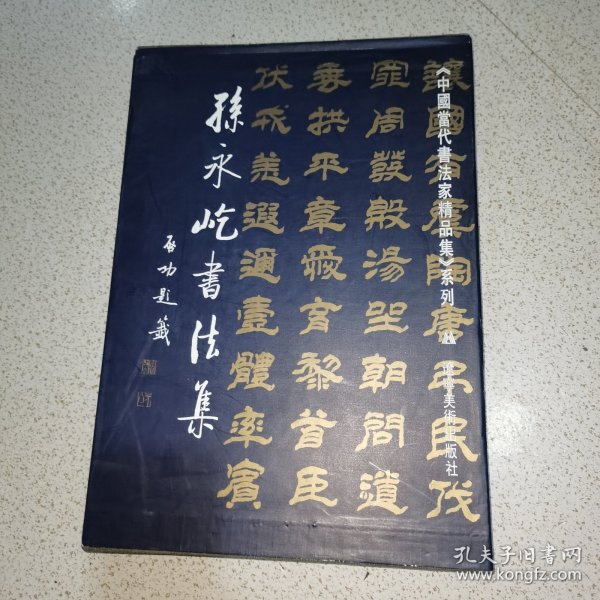 《中國當代書法家精品集》系列
遼寧美術出版社
讓國有虞陶唐弔民伐
罪周發殷湯坐朝問道
垂拱平章愛育黎首臣
伏戎羌遐邇壹體率賓
孫永屹書法集
啟功題籤
孔夫子旧书网
www.kongfz.com